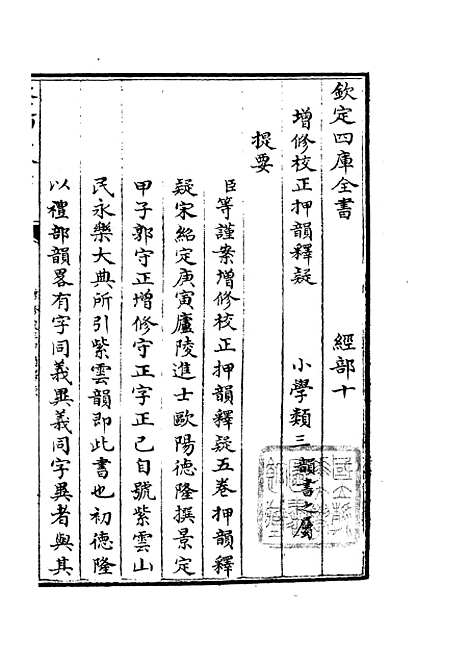 欽定四庫全書　經部十
增修校正押韻釋疑　小學類三韻書之屬
提要
臣等謹案增修校正押韻釋疑五卷押韻釋
疑宋紹定庚寅廬陵進士歐陽德隆撰景定
甲子郭守正增修守正字正己自號紫雲山
民永樂大典所引紫雲韻即此書也初德隆
以禮部韻畧有字同義異義同字異者與其